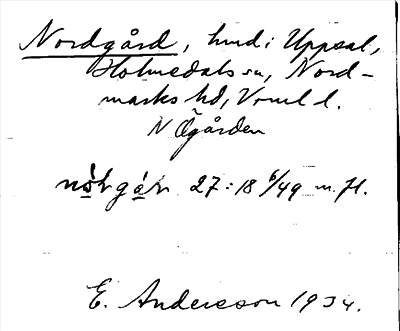 Nordgård, hmd i Uppsal,
Holmedals sn, Nord-
marks hd, Vrml l.
N Ögården
27:18 6/49 m. fl.
E. Andersson 1934.